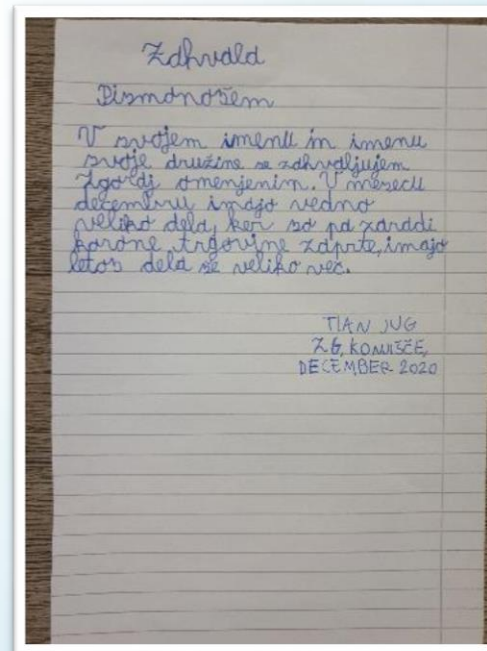 Zahvala
Pismonošem
V svojem imenu in imenu
svoje družine se zahvaljujem
zgoraj omenjenim. V mesecu
decembru imajo vedno
veliko dela, ker so pa zaradi
korone trgovine zaprte, imajo
letos dela še veliko več.
TIAN JUG
ZG, KONJIŠČE,
DECEMBER 2020